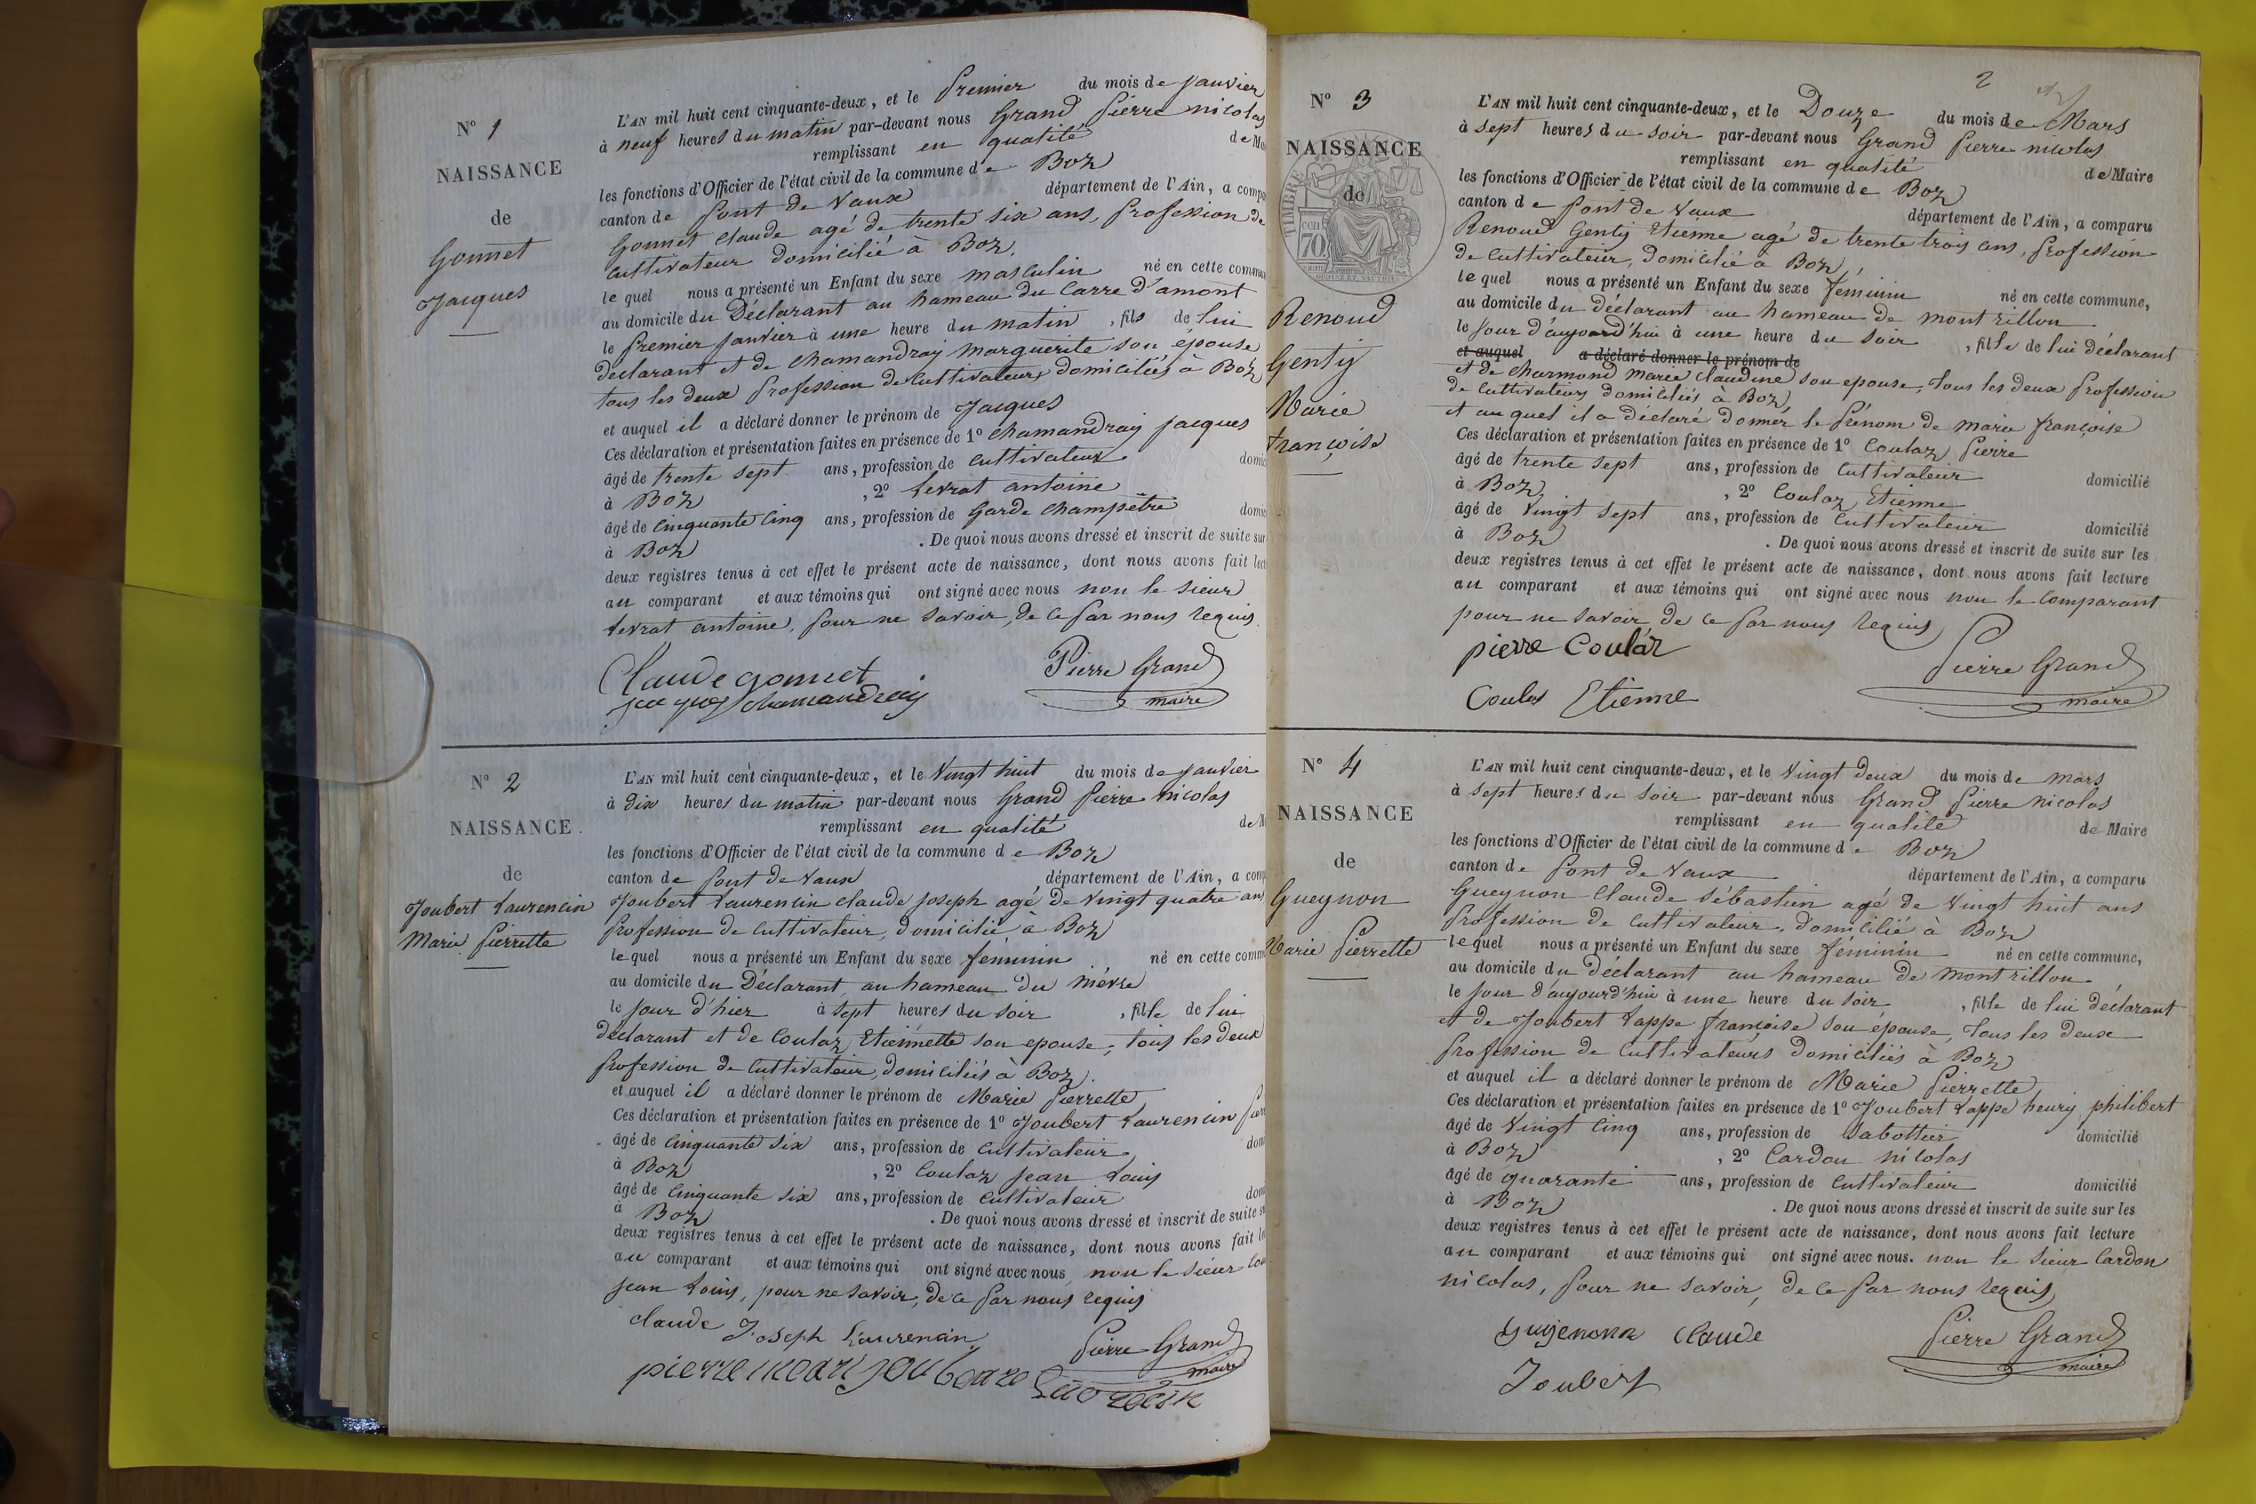 N° 1
NAISSANCE
de
Gonnet
Jacques
L'AN mil huit cent cinquante-deux, et le Premier du mois de janvier
à neuf heures du matin par-devant nous Grand Pierre nicolas
remplissant en qualité de M
les fonctions d'Officier de l'état civil de la commune de Boz
canton de Pont de Vaux département de l'Ain, a comp
Gonnet Claude agé de trente six ans, Profession de
cultivateur domicilié à Boz,
le quel nous a présenté un Enfant du sexe masculin né en cette commu
au domicile du Déclarant au hameau du Carre d'amont
le Premier janvier à une heure du matin, fils de lui
déclarant et de Chamandray Marguerite son épouse
tous les deux Profession de Cultivateurs domiciliés à Boz
et auquel il a déclaré donner le prénom de Jacques
Ces déclaration et présentation faites en présence de 1° Chamandray Jacques
âgé de trente sept ans, profession de Cultivateur domic
à Boz, 2° Levrat antoine
âgé de Cinquante Cinq ans, profession de Garde Champêtre domic
à Boz. De quoi nous avons dressé et inscrit de suite sur
deux registres tenus à cet effet le présent acte de naissance, dont nous avons fait lect
au comparant et aux témoins qui ont signé avec nous non le sieur
Levrat antoine, Pour ne savoir, de ce Par nous requis
Claude gonnet Pierre Grand
jacques chamandray maire
N° 2
NAISSANCE
de
Joubert Laurencin
Marie Pierrette
L'AN mil huit cent cinquante-deux, et le Vingt huit du mois de janvier
à dix heures du matin par-devant nous Grand Pierre nicolas
remplissant en qualité de M
les fonctions d'Officier de l'état civil de la commune de Boz
canton de Pont de Vaux département de l'Ain, a comp
Joubert Laurencin claude joseph agé de Vingt quatre ans
Profession de Cultivateur, domicilié à Boz
le quel nous a présenté un Enfant du sexe féminin né en cette comm
au domicile du Déclarant, au hameau du niévre
le jour d'hier à sept heures du soir, fille de lui
déclarant et de Coulaz Etiennette son epouse, tous les deux
Profession de Cultivateur, domiciliés à Boz.
et auquel il a déclaré donner le prénom de Marie Pierrette
Ces déclaration et présentation faites en présence de 1° Joubert Laurencin Pierr
âgé de Cinquante six ans, profession de Cultivateur dom
à Boz, 2° Coulaz jean Louis
âgé de Cinquante six ans, profession de Cultivateur dom
à Boz. De quoi nous avons dressé et inscrit de suite s
deux registres tenus à cet effet le présent acte de naissance, dont nous avons fait le
au comparant et aux témoins qui ont signé avec nous non le sieur Cou
jean Louis, pour ne savoir, de ce Par nous requis
claude Joseph Laurencin Pierre Grand
maire
2
N° 3
NAISSANCE
de
TIMBRE
70
Renoud
Gentij
Marie
Françoise
L'AN mil huit cent cinquante-deux, et le Douze du mois de Mars
à sept heures du soir par-devant nous Grand Pierre nicolas
remplissant en qualité de Maire
les fonctions d'Officier de l'état civil de la commune de Boz
canton de Pont de Vaux département de l'Ain, a comparu
Renoud Gentij Etienne agé de trente trois ans, Profession
de Cultivateur, domicilié à Boz,
le quel nous a présenté un Enfant du sexe féminin né en cette commune,
au domicile du déclarant au hameau de montrillon
le jour d'aujourd'hui à une heure du soir, fille de lui déclarant
et auquel a déclaré donner le prénom de
et de Charmond Marie Claudine son epouse, Tous les deux Profession
de Cultivateurs domiciliés à Boz
et au quel il a déclaré donner le Prénom de Marie Françoise
Ces déclaration et présentation faites en présence de 1° Coulaz Pierre
âgé de trente sept ans, profession de Cultivateur domicilié
à Boz, 2° Coulaz Etienne
âgé de Vingt sept ans, profession de Cultivateur domicilié
à Boz. De quoi nous avons dressé et inscrit de suite sur les
deux registres tenus à cet effet le présent acte de naissance, dont nous avons fait lecture
au comparant et aux témoins qui ont signé avec nous non le Comparant
pour ne savoir, de ce Par nous requis
pierre Coulaz Pierre Grand
Coulas Etienne maire
N° 4
NAISSANCE
de
Gueynon
Marie Pierrette
L'AN mil huit cent cinquante-deux, et le Vingt deux du mois de mars
à sept heures du soir par-devant nous Grand Pierre nicolas
remplissant en qualité de Maire
les fonctions d'Officier de l'état civil de la commune de Boz
canton de Pont de Vaux département de l'Ain, a comparu
Gueynon Claude Sébastien agé de Vingt huit ans
Profession de Cultivateur, domicilié à Boz
le quel nous a présenté un Enfant du sexe féminin né en cette commune,
au domicile du déclarant au hameau de montrillon
le jour d'aujourd'hui à une heure du soir, fille de lui déclarant
et de Joubert Lappe françoise son épouse, Tous les deux
Profession de Cultivateurs domiciliés à Boz
et auquel il a déclaré donner le prénom de Marie Pierrette
Ces déclaration et présentation faites en présence de 1° Joubert Lappe henrij philibert
âgé de Vingt Cinq ans, profession de Sabottier domicilié
à Boz, 2° Cardon nicolas
âgé de quarante ans, profession de Cultivateur domicilié
à Boz. De quoi nous avons dressé et inscrit de suite sur les
deux registres tenus à cet effet le présent acte de naissance, dont nous avons fait lecture
au comparant et aux témoins qui ont signé avec nous. non le sieur Cardon
nicolas, Pour ne savoir, de ce Par nous requis
Claude Pierre Grand
Joubert maire